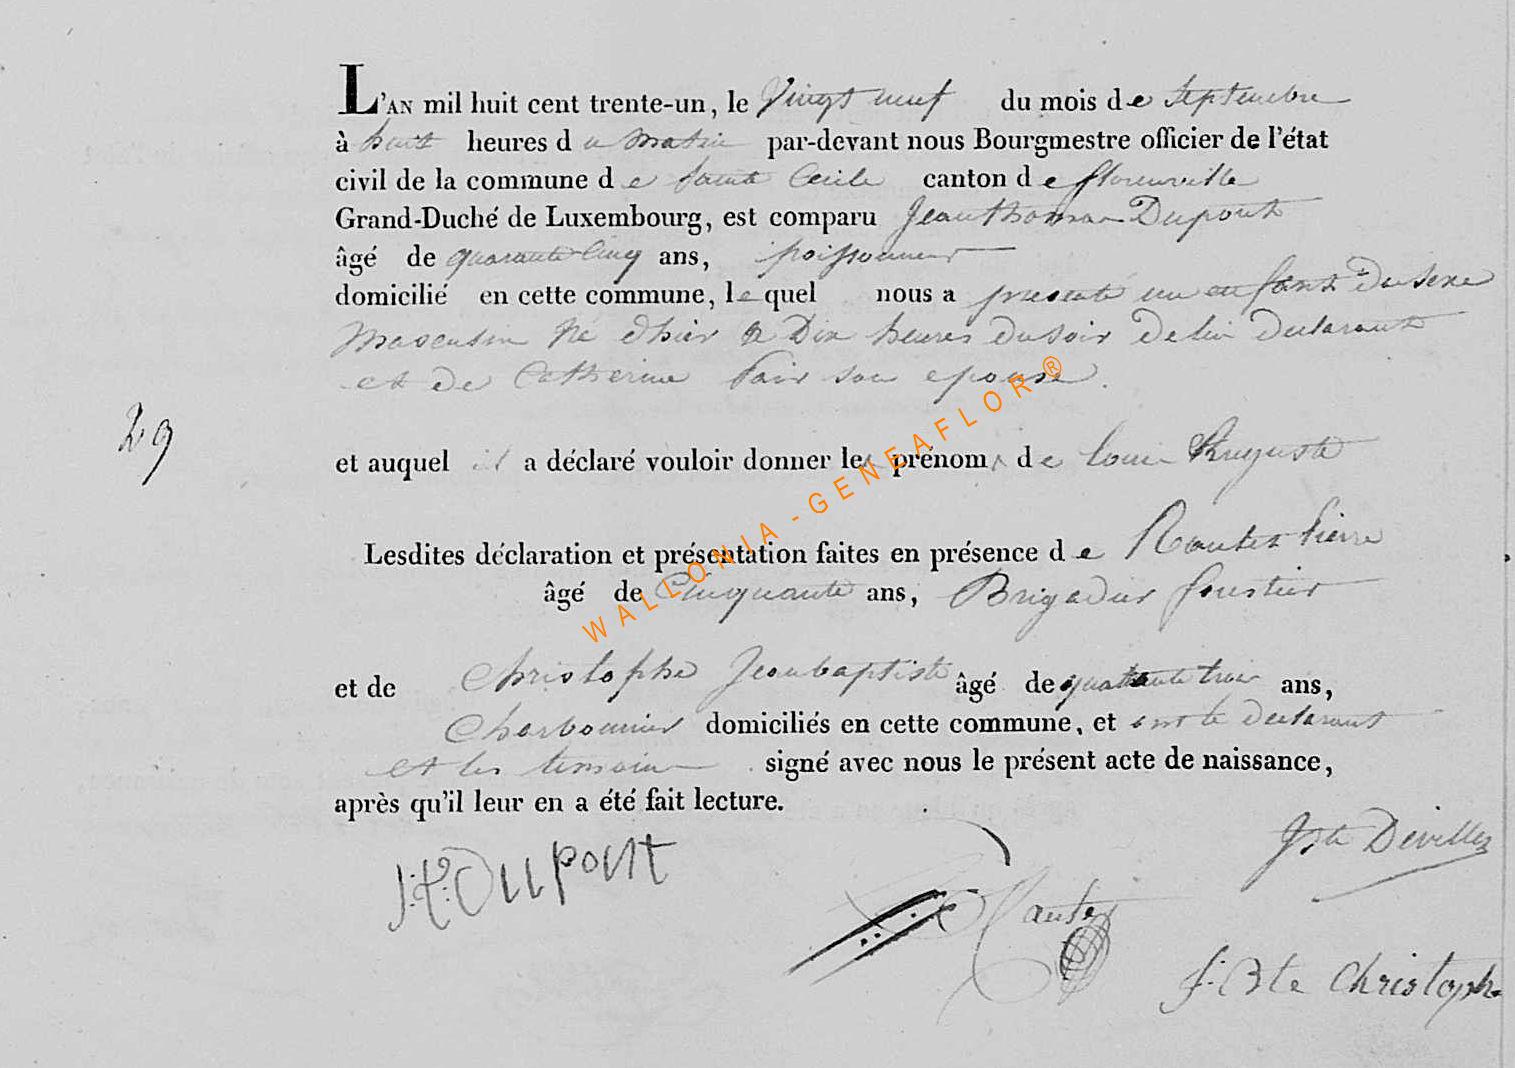 L'AN mil huit cent trente-un, le Vingt neuf du mois de Septembre
à huit heures du Matin par-devant nous Bourgmestre officier de l'état
civil de la commune de Sainte Cecile canton de florenville
Grand-Duché de Luxembourg, est comparu Jean thomas Dupont
âgé de quarante Cinq ans, poissonnier
domicilié en cette commune, lequel nous a presenté un enfant du sexe
Masculin Né d'hier a Dix heures du soir De lui declarant
et de Catherine son epouse.
29
et auquel il a déclaré vouloir donner les prénoms de Louis Auguste
Lesdites déclaration et présentation faites en présence de Pierre
âgé de Cinquante ans, Brigadier forestier
et de Christophe Jean baptiste âgé de quarante trois ans,
Charbonnier domiciliés en cette commune, et ont le declarant
et les temoins signé avec nous le présent acte de naissance,
après qu'il leur en a été fait lecture.
J: t: Dupont
Jste Devillez
J: Bte Christoph
WALLONIA - GENEAFLOR ®